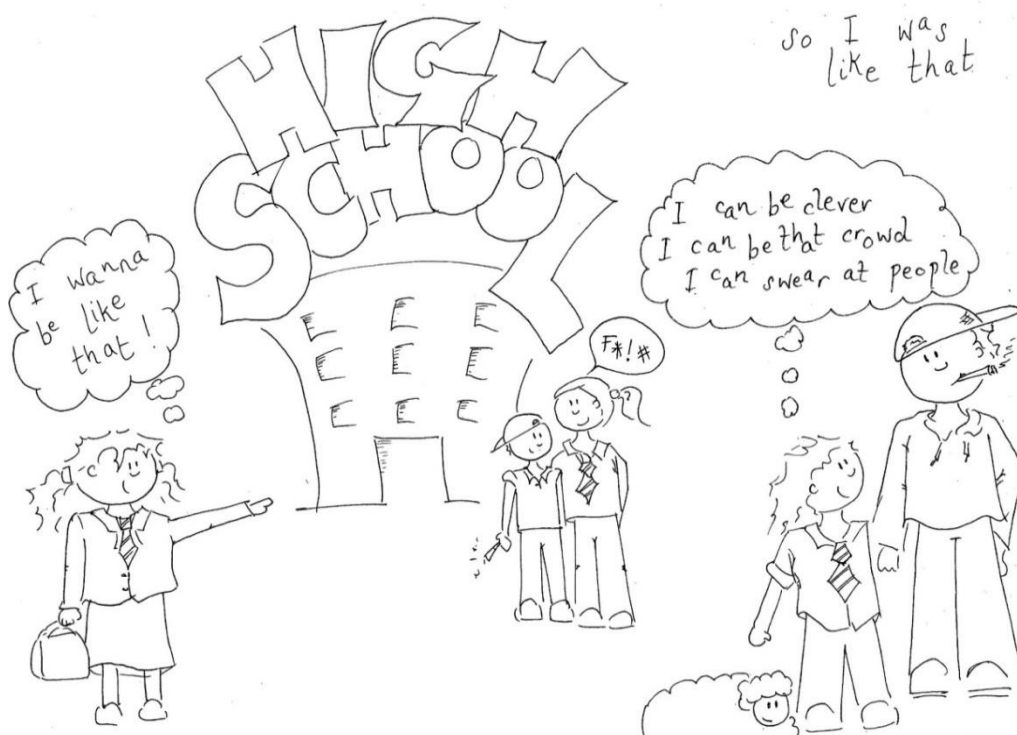 so I was
like that
HIGH
SCHOOL
I wanna
be like
that!
F*!#
I can be clever
I can be that crowd
I can swear at people